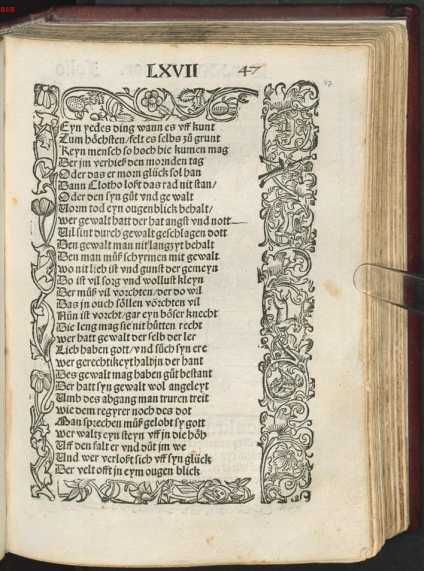 LXVII 47
47
Eyn yedes ding wann es vff kunt
Zum höchsten / felt es selbs zů grunt
Keyn mensch so hoch hie kumen mag
Der jm verheiß den mornden tag
Oder das er morn glück sol han
Dann Clotho loßt das rad nit stan /
Oder den syn gůt vnd gewalt
Vorm tod eyn ougenblick behalt /
wer gewalt hatt der hat angst vnd nott
Vil sint durch gewalt geschlagen dott
Den gewalt man nit langzyt behalt
Den man můß schyrmen mit gewalt
wo nit lieb ist vnd gunst der gemeyn
Do ist vil sorg vnd wollust kleyn
Der můß vil vörchten / der do wil
Das jn ouch söllen vörchten vil
Nůn ist vorcht / gar eyn böser knecht
Die leng mag sie nit hůtten recht
wer hatt gewalt der selb der ler
Lieb haben gott / vnd sůch syn ere
wer gerechtikeyt halt jn der hant
Des gewalt mag haben gůt bestant
Der hatt syn gewalt wol angeleyt
Umb des abgang man truren treit
wie dem regyrer noch des dot
Man sprechen můß gelobt sy gott
wer waltz eyn steyn vff jn die höh
Uff den falt er vnd důt jm we
Und wer verloßt sich vff syn glück
Der velt offt jn eym ougen blick